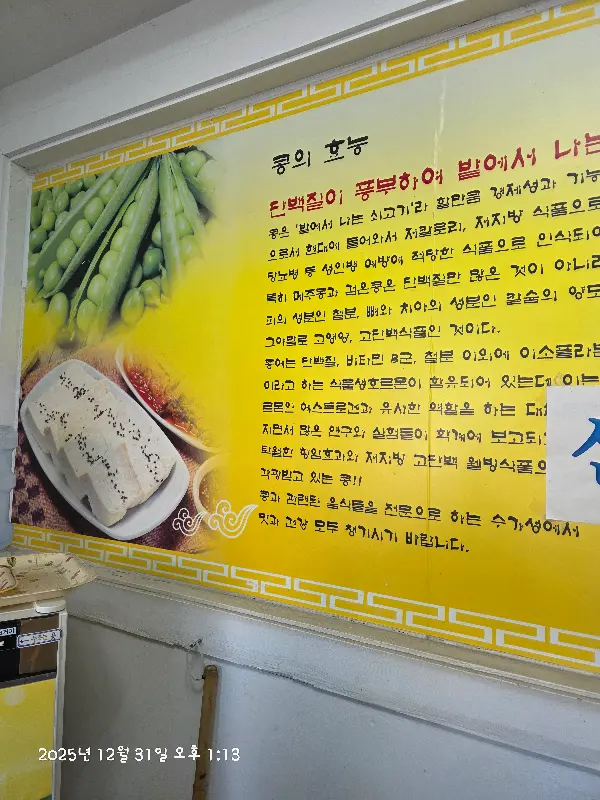 콩의 효능
단백질이 풍부하여 밭에서 나는
콩은 '밭에서 나는 쇠고기'라 할만큼 경제성과 기능
으로서 현대에 들어와서 저칼로리, 저지방 식품으로
당뇨병 등 성인병 예방에 적당한 식품으로 인식되어
특히 메주콩과 검은콩은 단백질만 많은 것이 아니라
피의 성분인 철분, 뼈와 치아의 성분인 칼슘의 양도
그야말로 고영양, 고단백식품인 것이다.
콩에는 단백질, 비타민 B군, 철분 이외에 이소플라본
이라고 하는 식물성호르몬이 함유되어 있는데 이는
르몬인 에스트로겐과 유사한 역할을 하는 대체
지면서 많은 연구와 실험들이 학계에 보고되고
탁월한 항암효과와 저지방 고단백 웰빙식품으
각광받고 있는 콩!!
콩과 관련된 음식들을 전문으로 하는 수가성에서
맛과 건강 모두 챙기시기 바랍니다.
2025년 12월 31일 오후 1:13